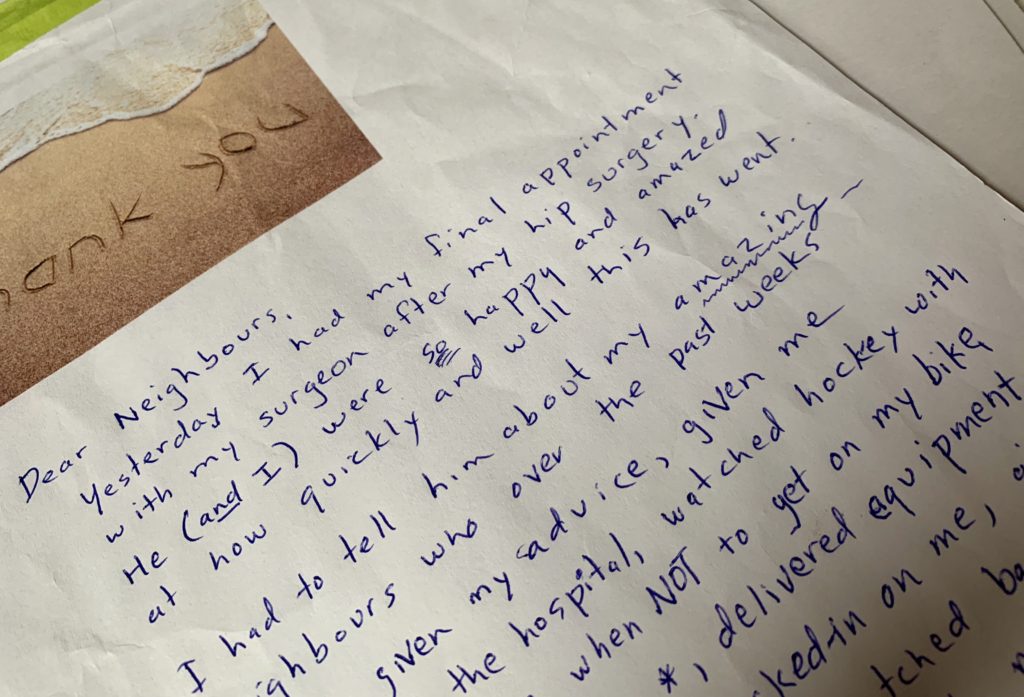 ank you
Dear Neighbours,
Yesterday I had my final appointment
with my surgeon after my hip surgery.
He (and I) were so happy and amazed
at how quickly and well this has went.
I had to tell him about my amazing
ighbours who over the past weeks
given my advice, given me
the hospital, watched hockey with
when NOT to get on my bike,
*, delivered equipment
ked-in on me,
tched ba